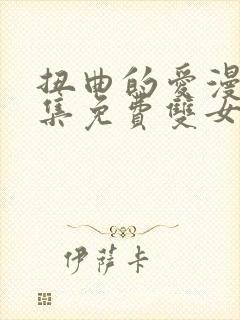 扭曲的愛漫
集免費雙女
伊薩卡